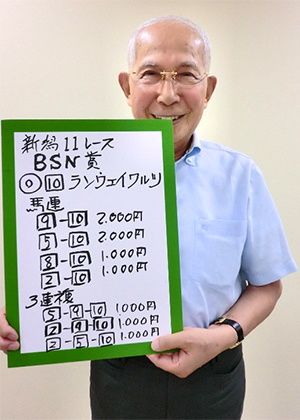 新潟11レース
BSN賞
◎10ランウェイワルツ
馬連
9-10 2.000円
5-10 2.000円
8-10 1.000円
2-10 1.000円
3連複
5-9-10 1.000円
2-9-10 1.000円
2-5-10 1.000円